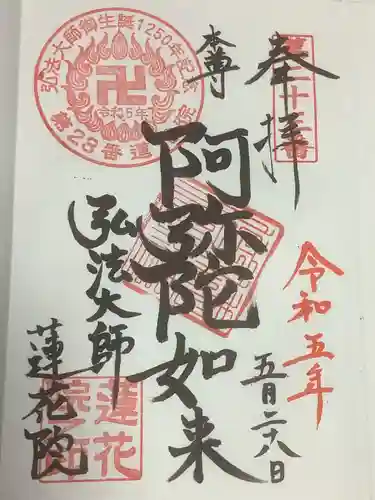 奉拝
第二十三番
令和五年
五月二十八日
本尊
阿弥陀如来
弘法大師
蓮花院
弘法大師御生誕1250年記念
令和5年
第23番蓮花院
蓮花院之印